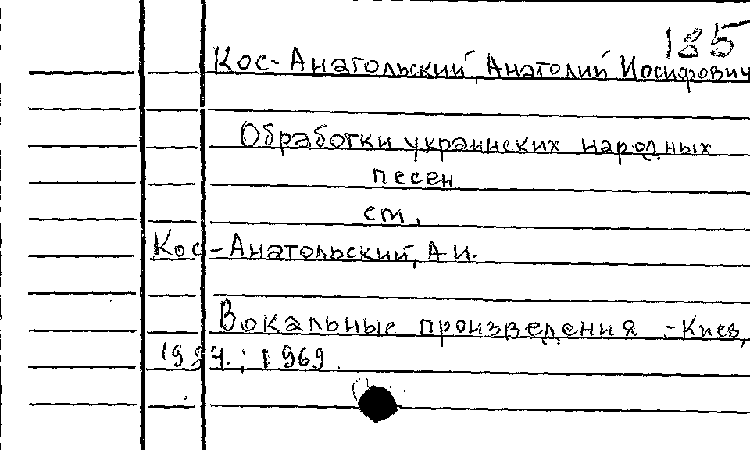 185
Кос-Анатольский, Анатолий Иосифович
Обработки украинских народных
песен
см.
Кос-Анатольский, А.И.
Вокальные произведения. -Киев,
1969.